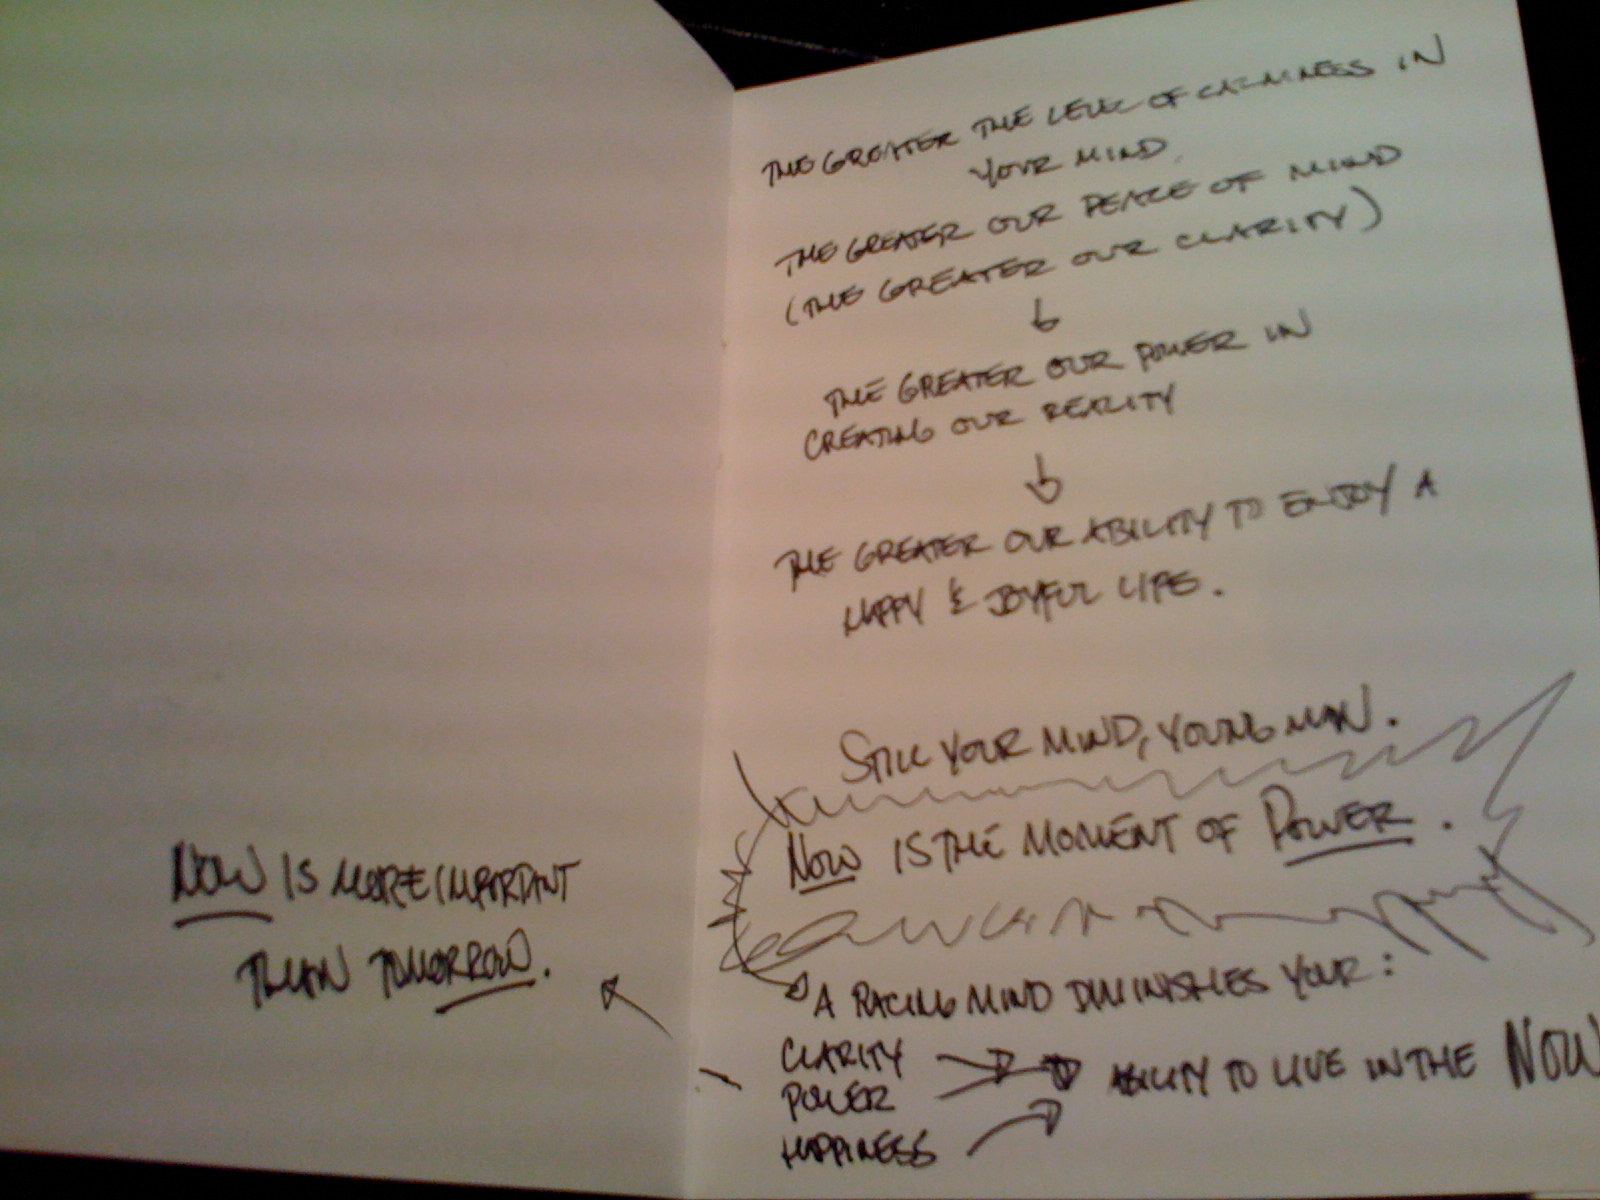 THE GREATER THE LEVEL OF CALMNESS IN
YOUR MIND,
THE GREATER OUR PEACE OF MIND
(THE GREATER OUR CLARITY)
THE GREATER OUR POWER IN
CREATING OUR REALITY
THE GREATER OUR ABILITY TO ENJOY A
HAPPY & JOYFUL LIFE.
STILL YOUR MIND, YOUNG MAN.
NOW IS THE MOMENT OF POWER.
A RACING MIND DIMINISHES YOUR:
CLARITY
POWER
HAPPINESS
ABILITY TO LIVE IN THE NOW
NOW IS MORE IMPORTANT
THAN TOMORROW.